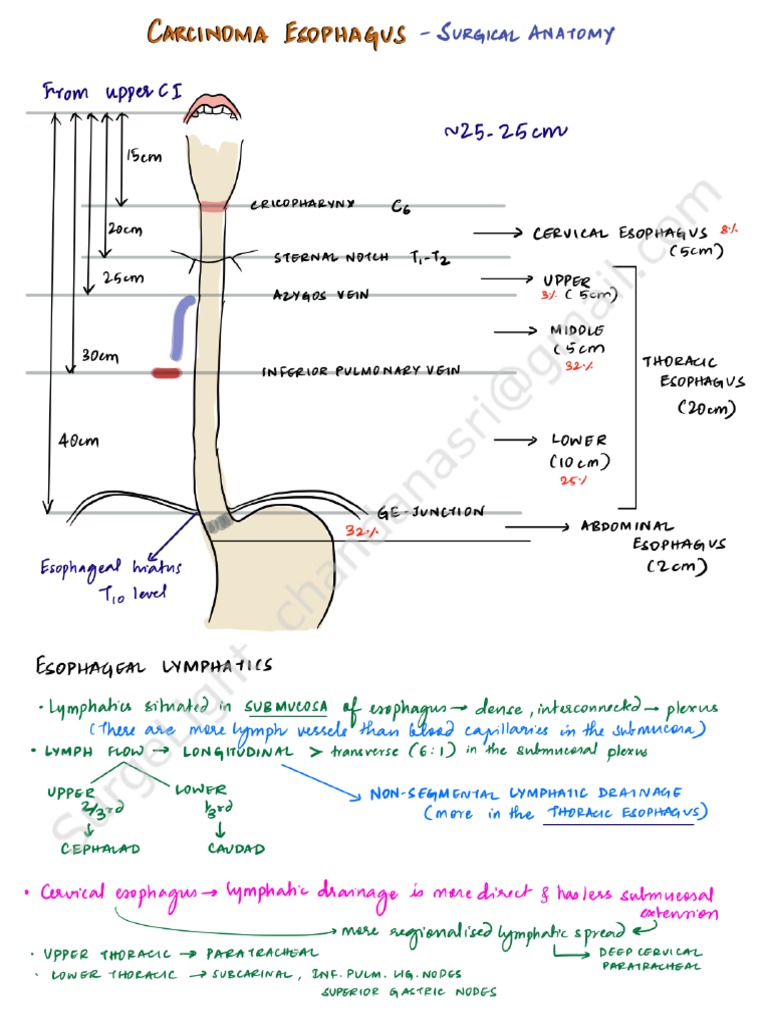 CARCINOMA ESOPHAGUS - SURGICAL ANATOMY
From upper CI
~25-25cm
15cm
CRICOPHARYNX C6
20cm
CERVICAL ESOPHAGUS 8%
(5cm)
STERNAL NOTCH T1-T2
25cm
UPPER
3% (5cm)
AZYGOS VEIN
MIDDLE
(5cm
32%
30cm
INFERIOR PULMONARY VEIN
THORACIC
ESOPHAGUS
(20cm)
40cm
LOWER
(10cm)
25%
GE-JUNCTION
32%
ABDOMINAL
ESOPHAGUS
(2cm)
Esophageal hiatus
T10 level
ESOPHAGEAL LYMPHATICS
• Lymphatics situated in SUBMUCOSA of esophagus → dense, interconnected → plexus
(There are more lymph vessels than blood capillaries in the submucosa)
• LYMPH FLOW → LONGITUDINAL > transverse (6:1) in the submucosal plexus
UPPER LOWER
2/3rd 1/3rd
↓ ↓
CEPHALAD CAUDAD
NON-SEGMENTAL LYMPHATIC DRAINAGE
(more in the THORACIC ESOPHAGUS)
• Cervical esophagus → lymphatic drainage is more direct & has less submucosal
extension
→ more regionalised lymphatic spread
DEEP CERVICAL
PARATRACHEAL
• UPPER THORACIC → PARATRACHEAL
• LOWER THORACIC → SUBCARINAL, INF. PULM. LIG. NODES
SUPERIOR GASTRIC NODES
SurgoLight chandanasri@gmail.com